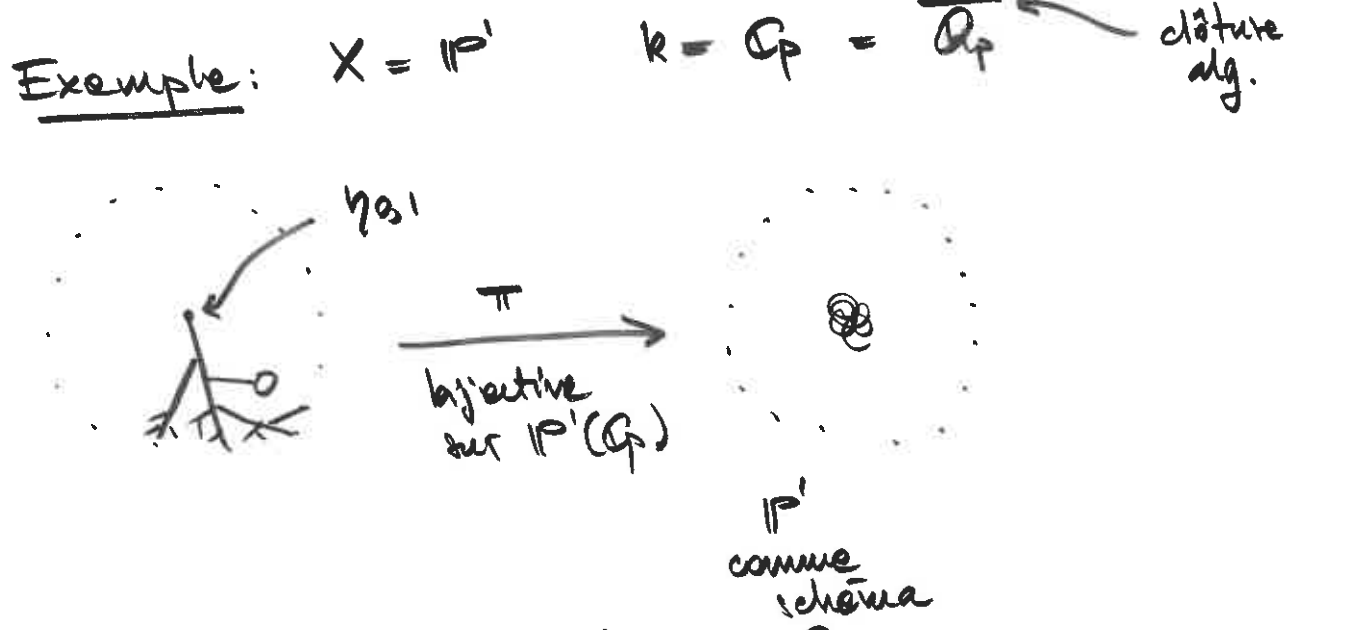 Exemple: X = ℙ¹ k = ℂp = \overline{ℚp} clôture alg.
η0,1
π
bijective
sur ℙ¹(ℂp)
ℙ¹
comme
schéma